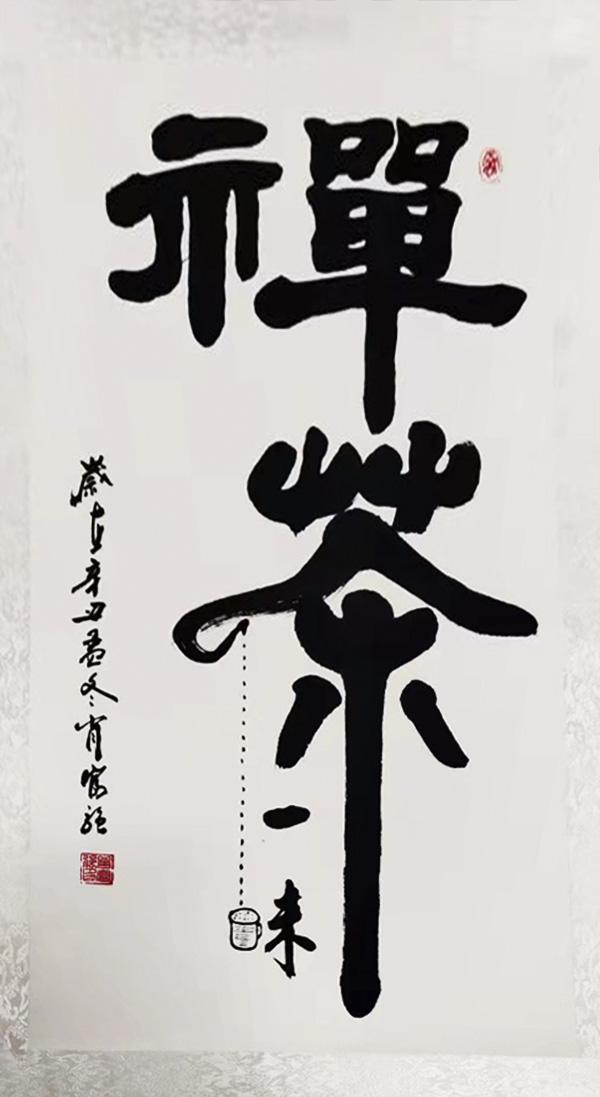 禪茶
一味
歲在辛丑孟冬肖家強